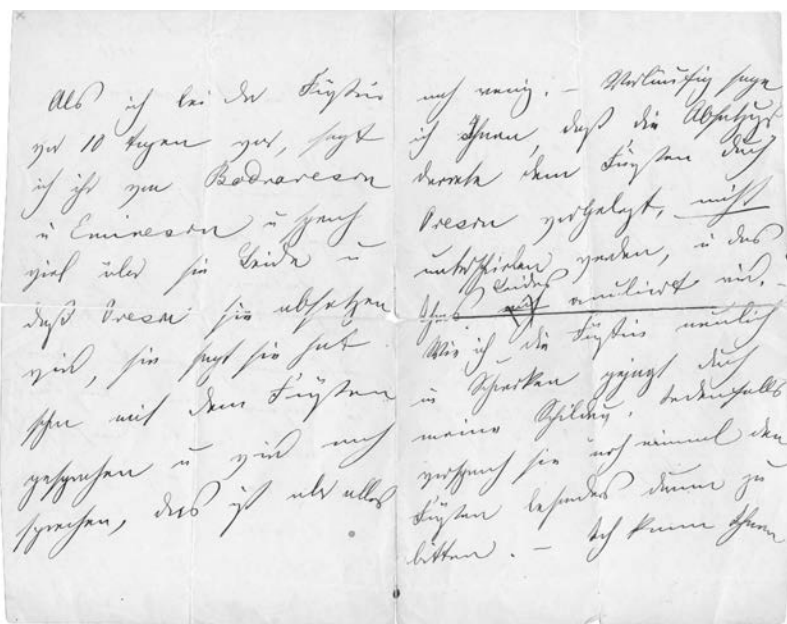 Als ich bei der Fürstin
vor 10 Tagen war, sagt
ich ihr von Bodnarescu
u Eminescu u sprach
viel über sie Beide u
daß Orescu sie absetzen
wird, sie sagt sie hat
schon mit dem Fürsten
gesprochen u wird noch
sprechen, das ist aber alles
noch wenig. – Vorläufig sage
ich Ihnen, daß die Absetzungs
decrete dem Fürsten durch
Orescu vorgelegt, nicht
unterschrieben werden, u das
Beider
annulirt wird. –
Wie ich die Fürstin neulich
in Schrecken gejagt durch
meine jedenfalls
versprach sie noch einmal den
Fürsten besonders darum zu
bitten. – Ich kann Ihnen